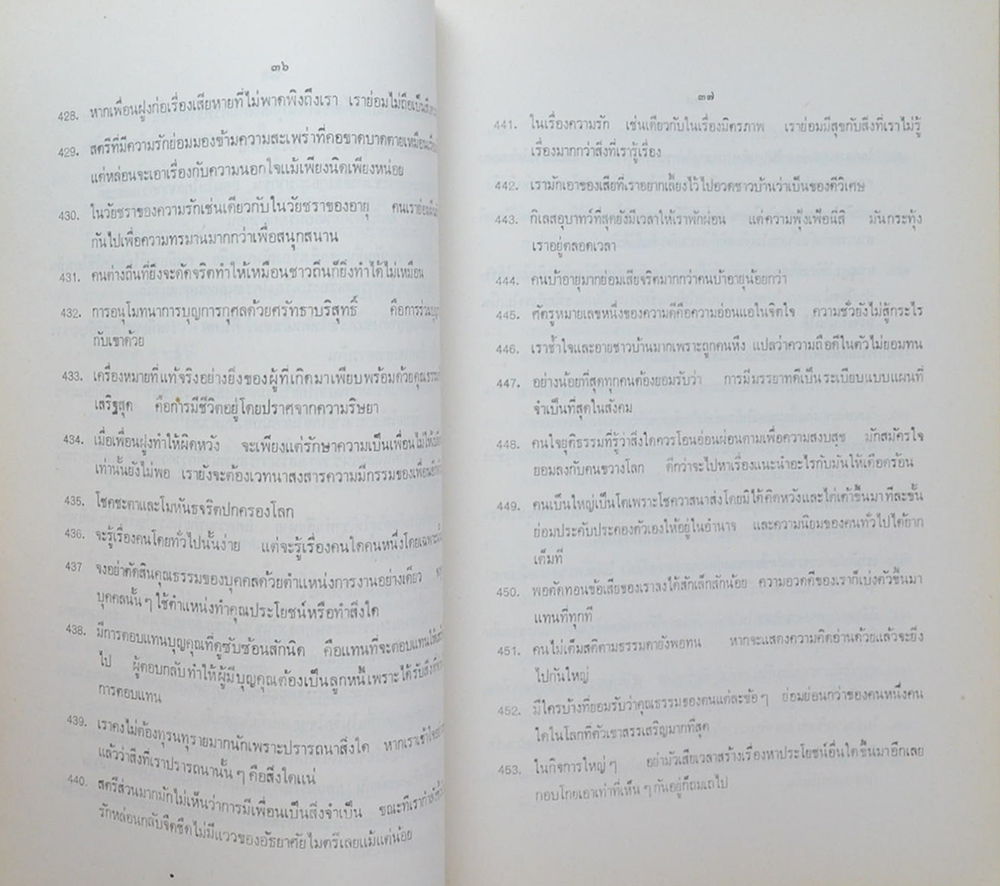 ๓๖
428. หากเพื่อนฝูงก่อเรื่องเสียหายที่ไม่พาดพิงถึงเรา เราย่อมไม่ถือเป็น
429. สตรีที่มีความรักย่อมมองข้ามความสะเพร่าที่คอขาดบาดตายเหมือน
แต่หล่อนจะเอาเรื่องกับความนอกใจแม้เพียงนิดเพียงหน่อย
430. ในวัยชราของความรักเช่นเดียวกับในวัยชราของอายุ คนเรา
กันไปเพื่อความทรมานมากกว่าเพื่อสนุกสนาน
431. คนต่างถิ่นที่ยิ่งจะดัดจริตทำให้เหมือนชาวถิ่นก็ยิ่งทำได้ไม่เหมือน
432. การอนุโมทนาการบุญการกุศลด้วยศรัทธาบริสุทธิ์ คือการร่วม
กับเขาด้วย
433. เครื่องหมายที่แท้จริงอย่างยิ่งของผู้ที่เกิดมาเพียบพร้อมด้วยคุณธรรม
เสริฐสุด คือการมีชีวิตอยู่โดยปราศจากความริษยา
434. เมื่อเพื่อนฝูงทำให้ผิดหวัง จะเพียงแต่รักษาความเป็นเพื่อนไม่ให้
เท่านั้นยังไม่พอ เรายังจะต้องเวทนาสงสารความมีกรรมของเพื่อน
435. โชคชะตาและโมหันธจริตปกครองโลก
436. จะรู้เรื่องคนโดยทั่วไปนั้นง่าย แต่จะรู้เรื่องคนใดคนหนึ่งโดยเฉพาะ
437 จงอย่าตัดสินคุณธรรมของบุคคลด้วยตำแหน่งการงานอย่างเดียว
บุคคลนั้น ๆ ใช้ตำแหน่งทำคุณประโยชน์หรือทำสิ่งใด
438. มีการตอบแทนบุญคุณที่ดูซับซ้อนสักนิด คือแทนที่จะตอบแทนให้
ไป ผู้ตอบกลับทำให้ผู้มีบุญคุณต้องเป็นลูกหนี้เพราะได้รับสิ่ง
การตอบแทน
439. เราคงไม่ต้องทุรนทุรายมากนักเพราะปรารถนาสิ่งใด หากเราเข้าใจ
แล้วว่าสิ่งที่เราปรารถนานั้น ๆ คือสิ่งใดแน่
440. สตรีส่วนมากมักไม่เห็นว่าการมีเพื่อนเป็นสิ่งจำเป็น ขณะที่เรากำลัง
รักหล่อนกลับจืดชืดไม่มีแววของอัธยาศัยไมตรีเลยแม้แต่น้อย
๓๗
441. ในเรื่องความรัก เช่นเดียวกับในเรื่องมิตรภาพ เราย่อมมีสุขกับสิ่งที่เราไม่รู้
เรื่องมากกว่าสิ่งที่เรารู้เรื่อง
442. เรามักเอาของเสียที่เราอยากเลี้ยงไว้ไปอวดชาวบ้านว่าเป็นของดีวิเศษ
443. กิเลสอุบาทว์ที่สุดยังมีเวลาให้เราพักผ่อน แต่ความฟุ้งเฟ้อนี่สิ มันกระทุ้ง
เราอยู่ตลอดเวลา
444. คนบ้าอายุมากย่อมเสียจริตมากกว่าคนบ้าอายุน้อยกว่า
445. ศัตรูหมายเลขหนึ่งของความดีคือความอ่อนแอในจิตใจ ความชั่วยังไม่สู้กระไร
446. เราช้ำใจและอายชาวบ้านมากเพราะถูกคนหึง แปลว่าความถือดีในตัวไม่ยอมทน
447. อย่างน้อยที่สุดทุกคนต้องยอมรับว่า การมีมรรยาทดีเป็นระเบียบแบบแผนที่
จำเป็นที่สุดในสังคม
448. คนใจยุติธรรมที่รู้ว่าสิ่งใดควรโอนอ่อนผ่อนตามเพื่อความสงบสุข มักสมัครใจ
ยอมลงกับคนขวางโลก ดีกว่าจะไปหาเรื่องแนะนำอะไรกับมันให้เดือดร้อน
449. คนเป็นใหญ่เป็นโตเพราะโชควาสนาส่งโดยมิได้คิดหวังและไต่เต้าขึ้นมาทีละขั้น
ย่อมประคับประคองตัวเองให้อยู่ในอำนาจ และความนิยมของคนทั่วไปได้ยาก
เต็มที
450. พอตัดทอนข้อเสียของเราลงได้สักเล็กสักน้อย ความอวดดีของเราก็เบ่งตัวขึ้นมา
แทนที่ทุกที
451. คนไม่เต็มสติตามธรรมดายังพอทน หากจะแสดงความคิดอ่านด้วยแล้วจะยิ่ง
ไปกันใหญ่
452. มีใครบ้างที่ยอมรับว่าคุณธรรมของตนแต่ละข้อ ๆ ย่อมย่อนกว่าของคนหนึ่งคน
ใดในโลกที่ตัวเขาสรรเสริญมากที่สุด
453. ในกิจการใหญ่ ๆ อย่ามัวเสียเวลาสร้างเรื่องหาประโยชน์อื่นใดขึ้นมาอีกเลย
กอบโกยเอาเท่าที่เห็น ๆ กันอยู่ก็ถมเถไป